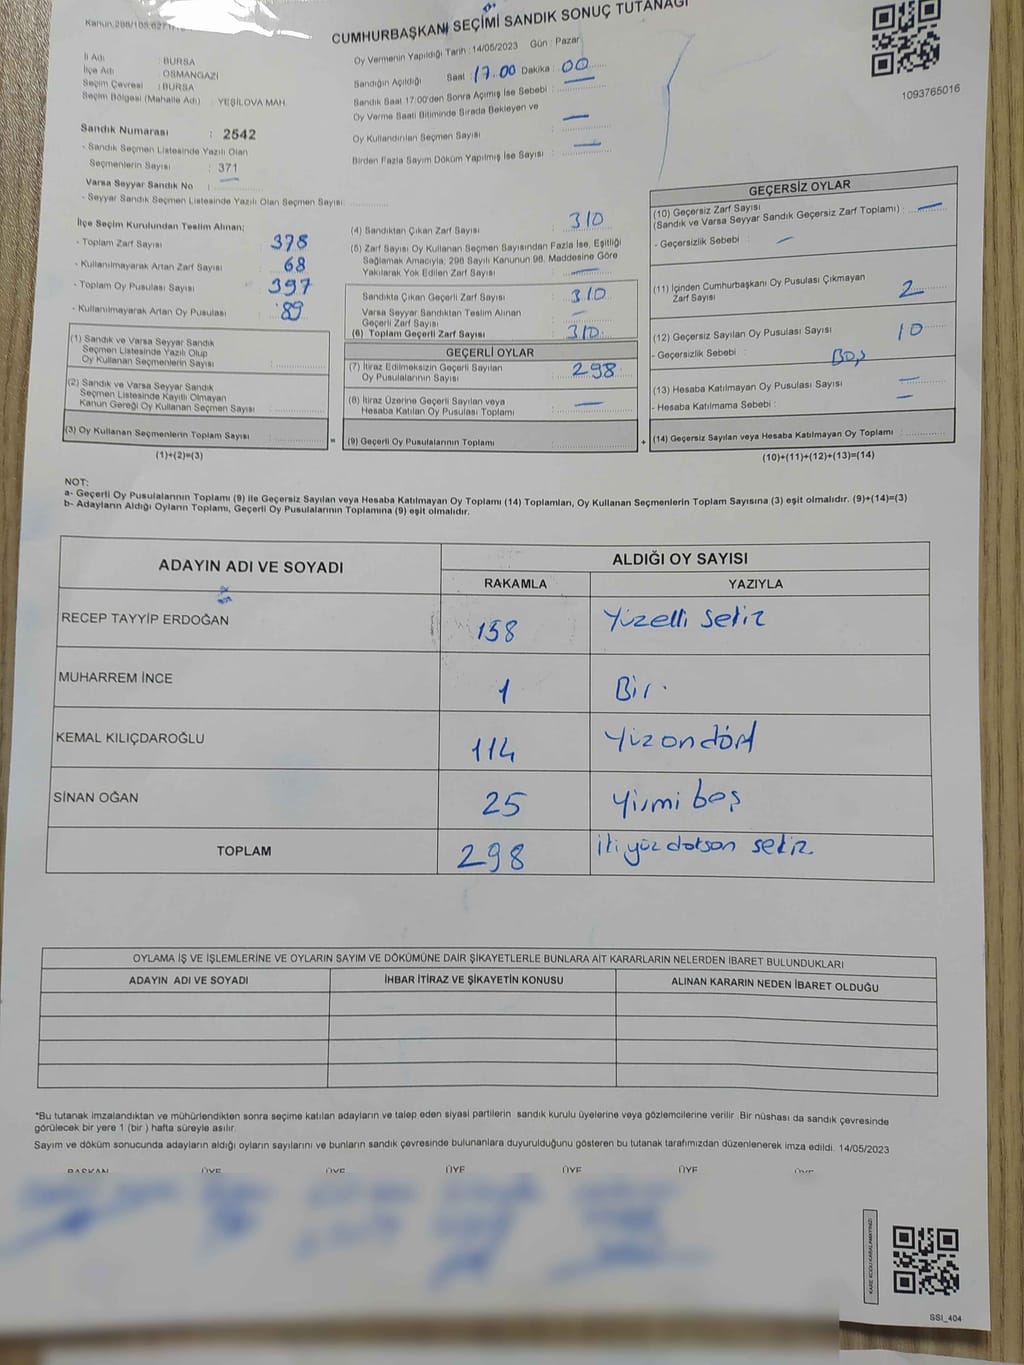 CUMHURBAŞKANI SEÇİMİ SANDIK SONUÇ TUTANAĞI
İl Adı : BURSA
İlçe Adı : OSMANGAZİ
Seçim Çevresi : BURSA
Seçim Bölgesi (Mahalle Adı) : YEŞİLOVA MAH.
Sandık Numarası : 2542
- Sandık Seçmen Listesinde Yazılı Olan
Seçmenlerin Sayısı : 371
Varsa Seyyar Sandık No : —
- Seyyar Sandık Seçmen Listesinde Yazılı Olan Seçmen Sayısı:
Oy Vermenin Yapıldığı Tarih : 14/05/2023 Gün : Pazar
Sandığın Açıldığı Saat : 17.00 Dakika : 00
Sandık Saat 17:00'den Sonra Açılmış İse Sebebi : —
Oy Verme Saati Bitiminde Sırada Bekleyen ve
Oy Kullandırılan Seçmen Sayısı —
Birden Fazla Sayım Döküm Yapılmış İse Sayısı : —
1093765016
İlçe Seçim Kurulundan Teslim Alınan;
- Toplam Zarf Sayısı : 378
- Kullanılmayarak Artan Zarf Sayısı : 68
- Toplam Oy Pusulası Sayısı : 397
- Kullanılmayarak Artan Oy Pusulası : 89
(1) Sandık ve Varsa Seyyar Sandık
Seçmen Listesinde Yazılı Olup
Oy Kullanan Seçmenlerin Sayısı :
(2) Sandık ve Varsa Seyyar Sandık
Seçmen Listesinde Kayıtlı Olmayan
Kanun Gereği Oy Kullanan Seçmen Sayısı :
(3) Oy Kullanan Seçmenlerin Toplam Sayısı :
(1)+(2)=(3)
(4) Sandıktan Çıkan Zarf Sayısı : 310
(5) Zarf Sayısı Oy Kullanan Seçmen Sayısından Fazla İse, Eşitliği
Sağlamak Amacıyla; 298 Sayılı Kanunun 98. Maddesine Göre
Yakılarak Yok Edilen Zarf Sayısı : —
Sandıkta Çıkan Geçerli Zarf Sayısı : 310
Varsa Seyyar Sandıktan Teslim Alınan
Geçerli Zarf Sayısı : —
(6) Toplam Geçerli Zarf Sayısı : 310
GEÇERLİ OYLAR
(7) İtiraz Edilmeksizin Geçerli Sayılan
Oy Pusulalarının Sayısı : 298
(8) İtiraz Üzerine Geçerli Sayılan veya
Hesaba Katılan Oy Pusulası Toplamı : —
= (9) Geçerli Oy Pusulalarının Toplamı :
GEÇERSİZ OYLAR
(10) Geçersiz Zarf Sayısı
(Sandık ve Varsa Seyyar Sandık Geçersiz Zarf Toplamı) : —
- Geçersizlik Sebebi : —
(11) İçinden Cumhurbaşkanı Oy Pusulası Çıkmayan
Zarf Sayısı : 2
(12) Geçersiz Sayılan Oy Pusulası Sayısı : 10
- Geçersizlik Sebebi : Boş
(13) Hesaba Katılmayan Oy Pusulası Sayısı : —
- Hesaba Katılmama Sebebi : —
+ (14) Geçersiz Sayılan veya Hesaba Katılmayan Oy Toplamı :
(10)+(11)+(12)+(13)=(14)
NOT:
a- Geçerli Oy Pusulalarının Toplamı (9) ile Geçersiz Sayılan veya Hesaba Katılmayan Oy Toplamı (14) Toplamları, Oy Kullanan Seçmenlerin Toplam Sayısına (3) eşit olmalıdır. (9)+(14)=(3)
b- Adayların Aldığı Oyların Toplamı, Geçerli Oy Pusulalarının Toplamına (9) eşit olmalıdır.
ADAYIN ADI VE SOYADI ALDIĞI OY SAYISI
RAKAMLA YAZIYLA
RECEP TAYYİP ERDOĞAN 158 Yüzelli sekiz
MUHARREM İNCE 1 Bir.
KEMAL KILIÇDAROĞLU 114 Yüzondört
SİNAN OĞAN 25 Yirmi beş
TOPLAM 298 ikiyüz doksan sekiz
OYLAMA İŞ VE İŞLEMLERİNE VE OYLARIN SAYIM VE DÖKÜMÜNE DAİR ŞİKAYETLERLE BUNLARA AİT KARARLARIN NELERDEN İBARET BULUNDUKLARI
ADAYIN ADI VE SOYADI İHBAR İTİRAZ VE ŞİKAYETİN KONUSU ALINAN KARARIN NEDEN İBARET OLDUĞU
*Bu tutanak imzalandıktan ve mühürlendikten sonra seçime katılan adayların ve talep eden siyasi partilerin sandık kurulu üyelerine veya gözlemcilerine verilir. Bir nüshası da sandık çevresinde
görülecek bir yere 1 (bir ) hafta süreyle asılır.
Sayım ve döküm sonucunda adayların aldığı oyların sayılarını ve bunların sandık çevresinde bulunanlara duyurulduğunu gösteren bu tutanak tarafımızdan düzenlenerek imza edildi. 14/05/2023
BAŞKAN ÜYE ÜYE ÜYE ÜYE ÜYE ÜYE
SSI_404